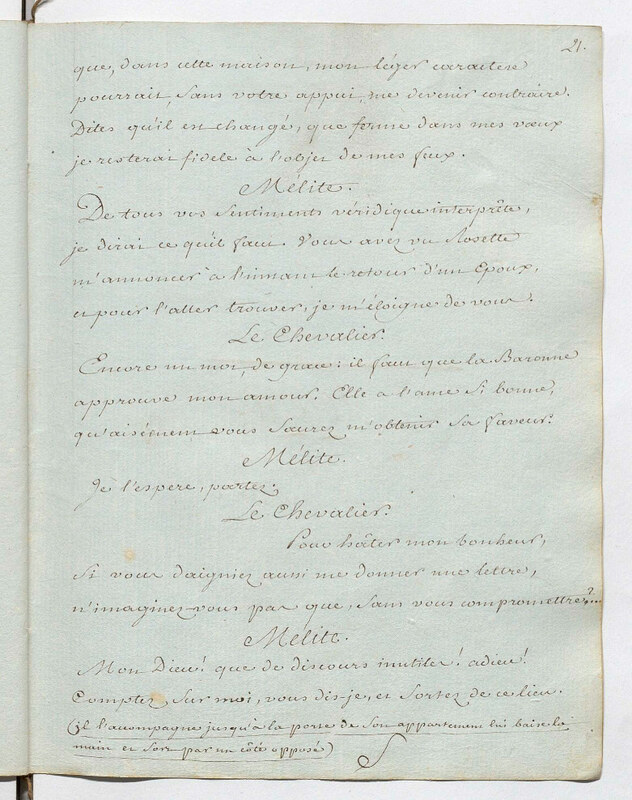 21.
que, dans cette maison, mon léger caractère
pourrait, sans votre appui, me devenir contraire.
Dites qu'il est changé, que ferme dans mes vœux
je resterai fidele à l'objet de mes feux.
Mélite.
De tous vos sentiments véridique interprête,
je dirai ce qu'il faut. Vous avez vu Rosette
m'annoncer à l'instant le retour d'un Epoux,
et pour l'aller trouver, je m'éloigne de vous.
Le Chevalier.
Encore un mot, de grace: il faut que la Baronne
approuve mon amour. Elle a l'ame si bonne,
qu'aisément vous saurez m'obtenir sa faveur.
Mélite.
Je l'espere, partez.
Le Chevalier.
Pour hâter mon bonheur,
Si vous daigniez aussi me donner une lettre,
n'imaginez-vous pas que, sans vous compromettre?...
Mélite.
Mon Dieu! que de discours inutiles! adieu!
Comptez sur moi, vous dis-je, et sortez de ce lieu.
(il l'acompagne jusqu'à la porte de son appartement lui baise la
main et sort par un côté opposé)